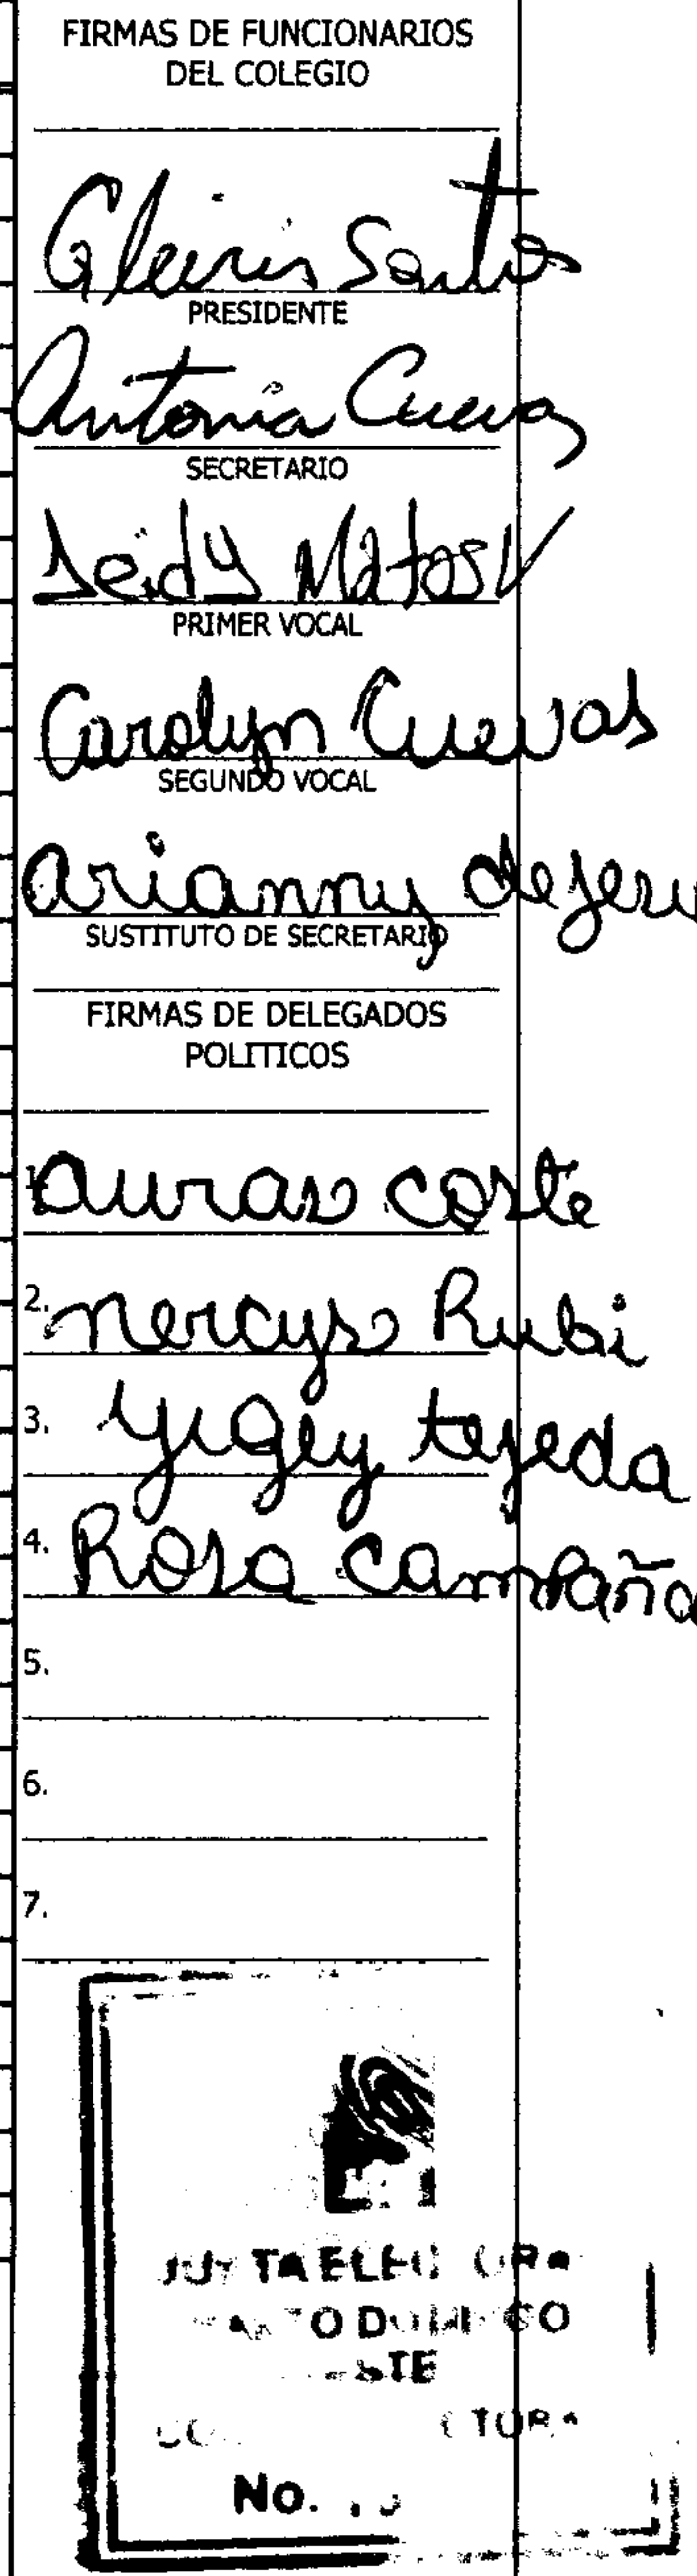 FIRMAS DE FUNCIONARIOS
DEL COLEGIO
Gleiris Santos
PRESIDENTE
Antonia Cuevas
SECRETARIO
Leidy Matos V
PRIMER VOCAL
Carolyn Cuevas
SEGUNDO VOCAL
Arianny de jesu
SUSTITUTO DE SECRETARIO
FIRMAS DE DELEGADOS
POLITICOS
1. coste
2. nercys Rubi
3. yigey tejeda
4. Rosa campaña
5.
6.
7.
No.